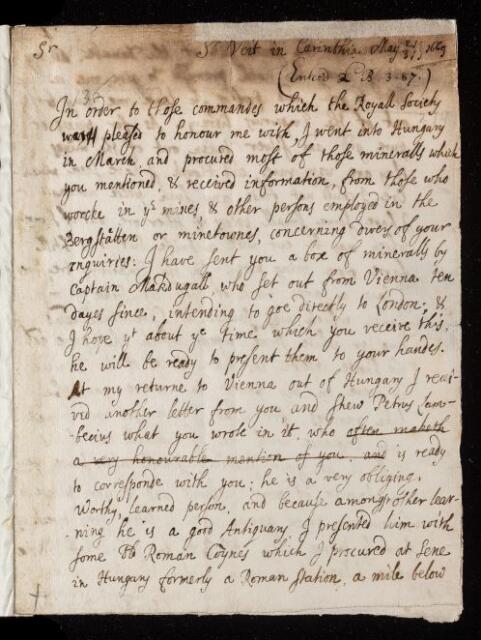 Sr St Veit in Carinthia May 21/31 1669
(Entred L.B. 3. 87.)
In order to those commandes which the Royall Society
was pleased to honour me with, I went into Hungary
in March, and procured most of those mineralls which
you mentioned, & received information, from those who
worcke in ye mines, & other persons employed in the
Bergstätten or minetownes, concerning divers of your
enquiries: I have sent you a box of mineralls by
Captain Makdugall, who set out from Vienna ten
dayes since, intending to goe directly to London: &
I hope yt about ye time which you receive this,
he will be ready to present them to your handes.
At my returne to Vienna out of Hungary I recei-
vid another letter from you and shew Petrus Lam-
-becius what you wrote in it, who often maketh
a very honourable mention of you, and is ready
to corresponde with you; he is a very obliging,
Worthy, learned person, and because amongs other lear-
ning he is a good Antiquary I presented him with
some Roman Coynes which I procured at Sene
in Hungary formerly a Roman Station, a mile below